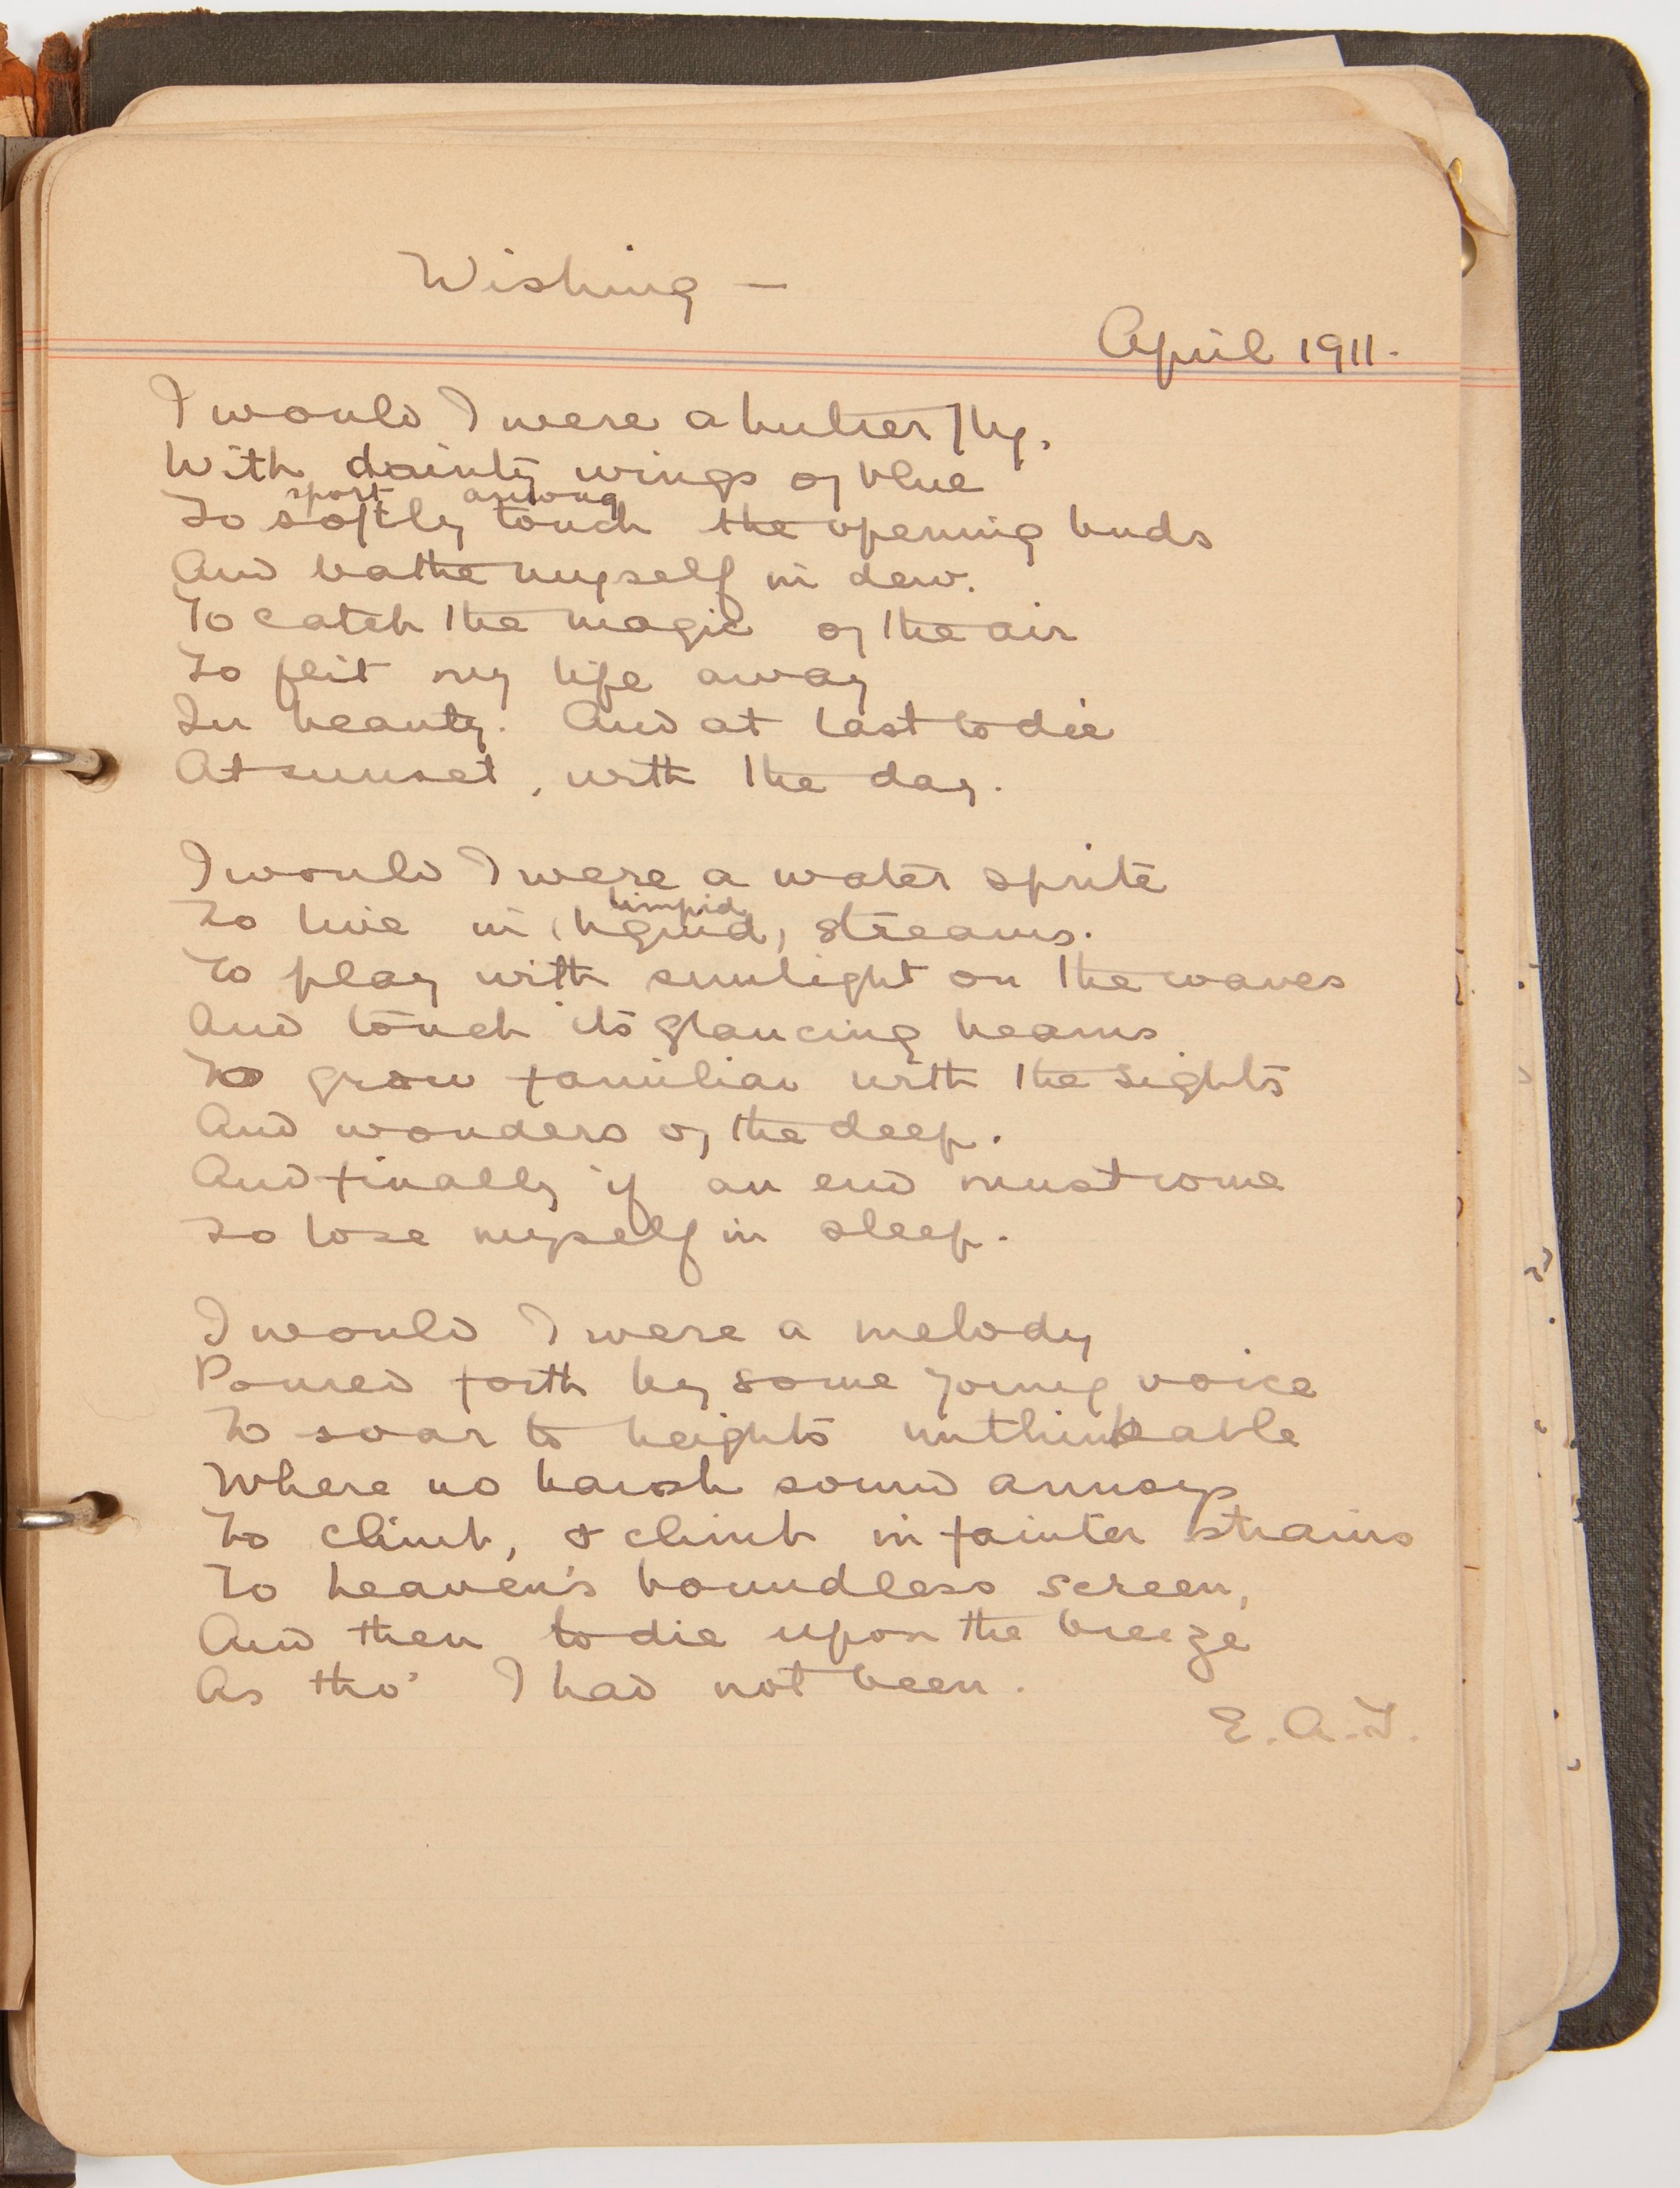 Wishing —
April 1911.
I would I were a butterfly.
With dainty wings of blue
sport among
To softly touch the opening buds
And bathe myself in dew.
To catch the magic of the air
To flit my life away
In beauty. And at last to die
At sunset, with the day.
I would I were a water sprite
limpid
To live in (liquid) streams.
To play with sunlight on the waves
And touch its glancing beams
To grow familiar with the sights
And wonders of the deep.
And finally if an end must come
To lose myself in sleep.
I would I were a melody
Poured forth by some young voice
To soar to heights unthinkable
Where no harsh sound annoys
To climb, & climb in fainter strains
To heaven's boundless screen,
And then to die upon the breeze
As tho' I had not been.
E.A.T.